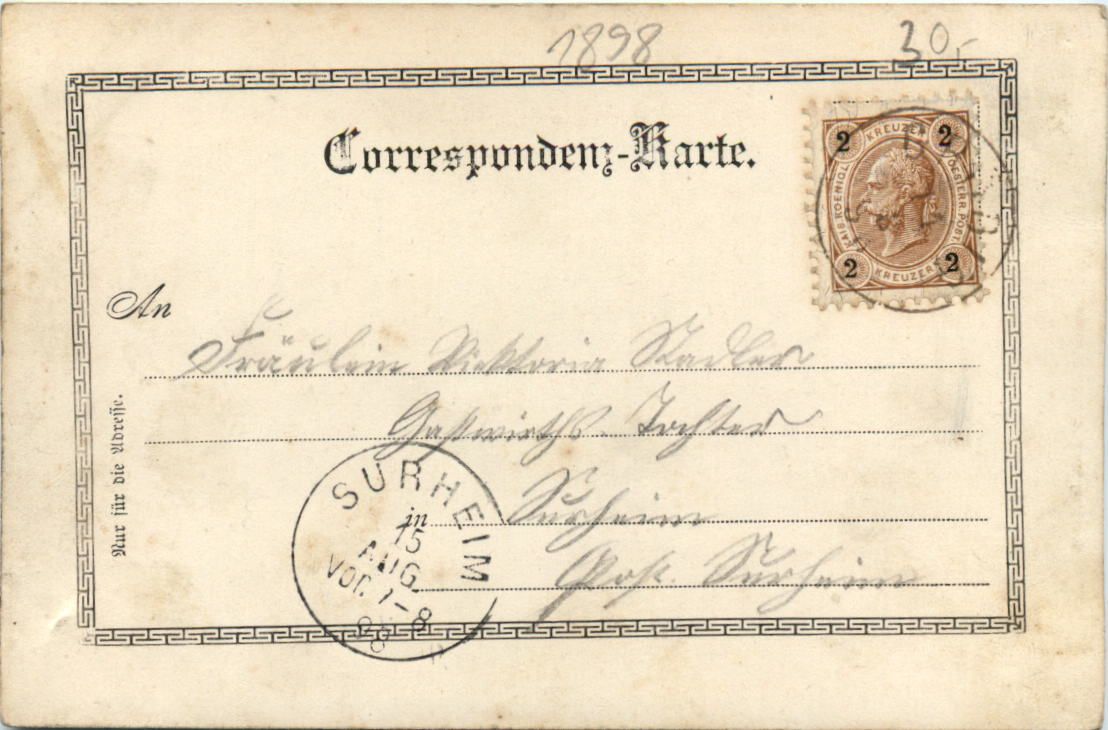 1898
30,-
Correspondenz-Karte.
2 KREUZER 2
KAIS. KOENIGL. OESTERR. POST
2 KREUZER 2
An
Fräulein Viktoria Stadler
Gastwirths-Tochter
in Surheim
Post. Surheim
Nur für die Adresse.
SURHEIM
15
AUG.
VOR. 7-8
98